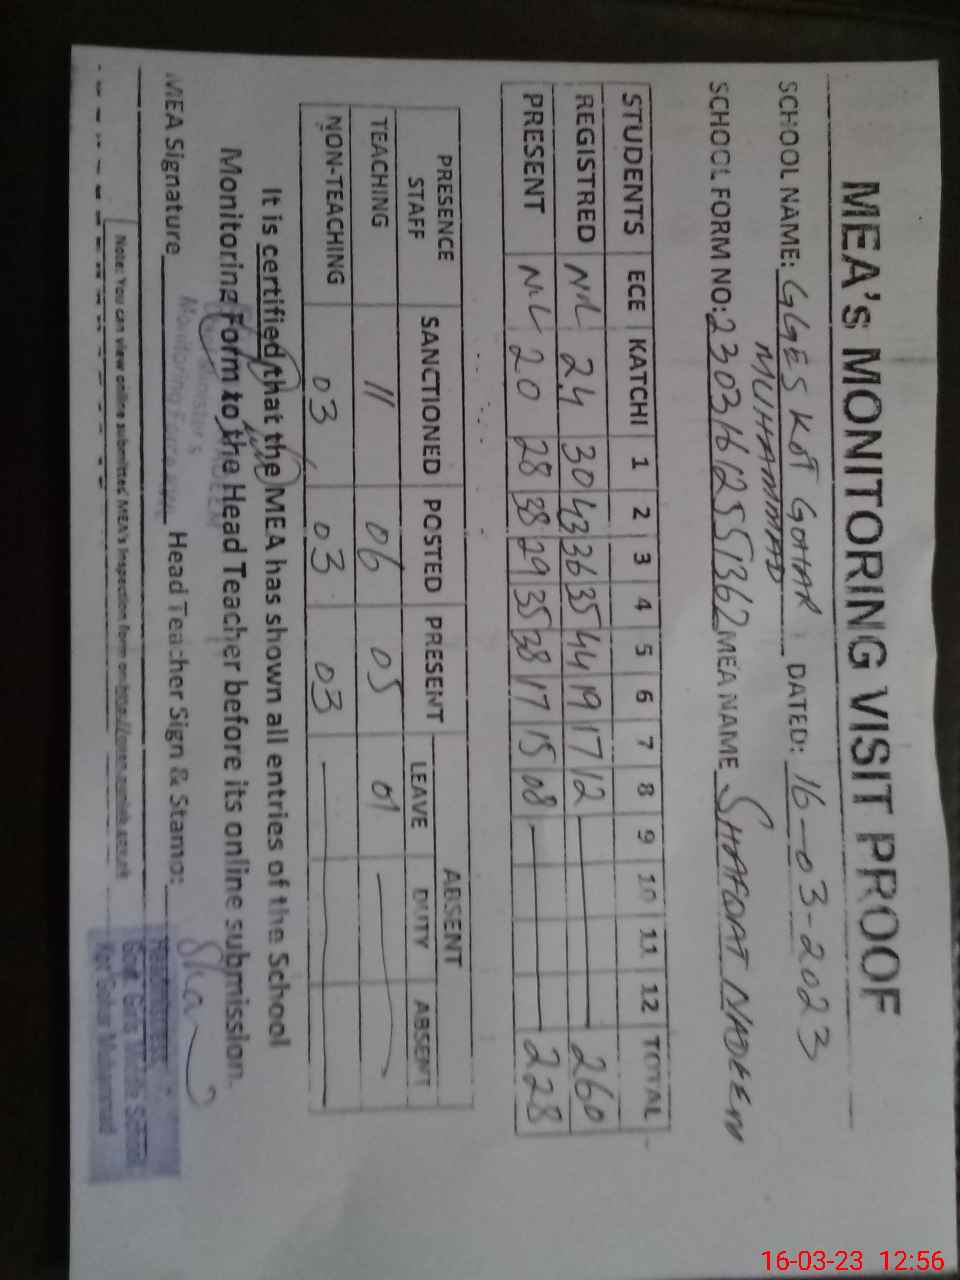 MEA's MONITORING VISIT PROOF
SCHOOL NAME: GGES KOT GOHAR DATED: 16-03-2023
MUHAMMAD
SCHOOL FORM NO: 23031612551362 MEA NAME SHAFQAT NADEEM
STUDENTS ECE KATCHI 1 2 3 4 5 6 7 8 9 10 11 12 TOTAL
REGISTRED NIL 24 30 43 36 35 44 19 17 12 — 260
PRESENT NIL 20 28 38 29 35 38 17 15 08 — 228
PRESENCE STAFF SANCTIONED POSTED PRESENT ABSENT
LEAVE DUTY ABSENT
TEACHING 11 06 05 01 —
NON-TEACHING 03 03 03 —
It is certified that the MEA has shown all entries of the School
Monitoring Form to the Head Teacher before its online submission.
Monitoring Force
MEA Signature Head Teacher Sign & Stamp:
Headmistress
Govt. Girls Middle School
Kot Gohar Muhammad
Note: You can view online submitted MEA's Inspection form on
16-03-23 12:56